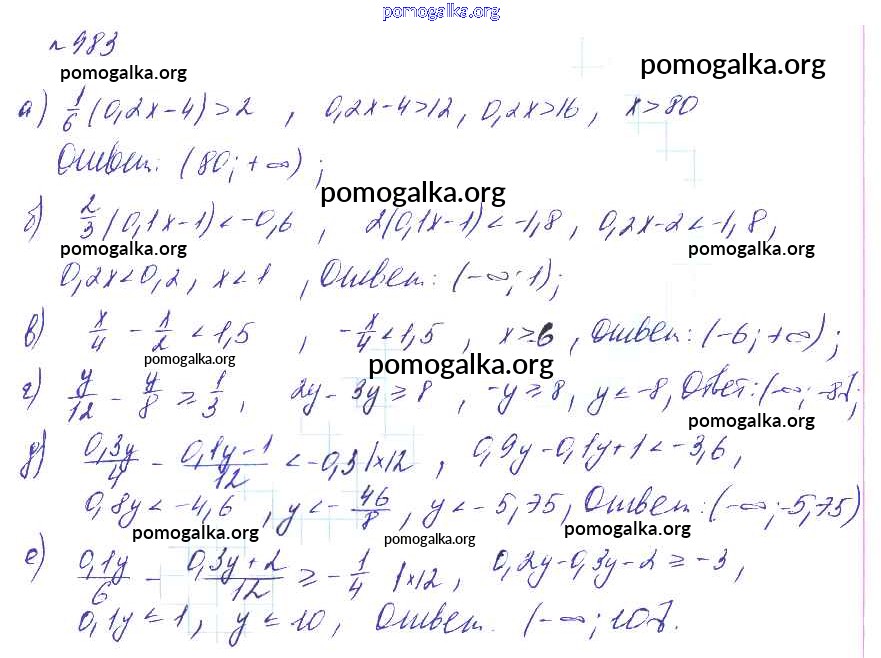 pomogalka.org
№983
pomogalka.org
pomogalka.org
а) 1/6 (0,2x-4)>2 , 0,2x-4>12, 0,2x>16, x>80
Ответ: (80;+∞) ;
pomogalka.org
б) 2/3 (0,1x-1)<-0,6 , 2(0,1x-1)<-1,8, 0,2x-2<-1,8,
pomogalka.org
pomogalka.org
0,2x<0,2, x<1 , Ответ: (-∞;1);
в) x/4 - x/2 <1,5 , -x/4<1,5 , x>-6, Ответ: (-6;+∞);
pomogalka.org
pomogalka.org
г) y/12 - y/8 ≥ 1/3, 2y-3y≥8 , -y≥8, y≤-8, Ответ: (-∞;-8];
pomogalka.org
д) 0,3y/4 - 0,1y-1/12 <-0,3 |×12 , 0,9y-0,1y+1<-3,6,
0,8y<-4,6 , y<-46/8 , y<-5,75, Ответ: (-∞;-5,75)
pomogalka.org
pomogalka.org
pomogalka.org
е) 0,1y/6 - 0,3y+2/12 ≥ -1/4 |×12, 0,2y-0,3y-2≥-3,
0,1y≤1, y≤10, Ответ. (-∞;10].